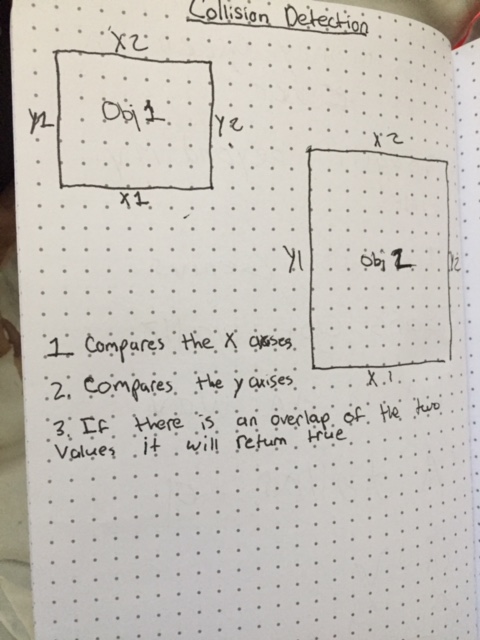 Collision Detection
X2
Obj 1
Y1
Y2
X1
X2
Y1
Obj 2
Y2
X1
1. Compares the X axises
2. Compares the y axises
3. If there is an overlap of the two
values it will return true